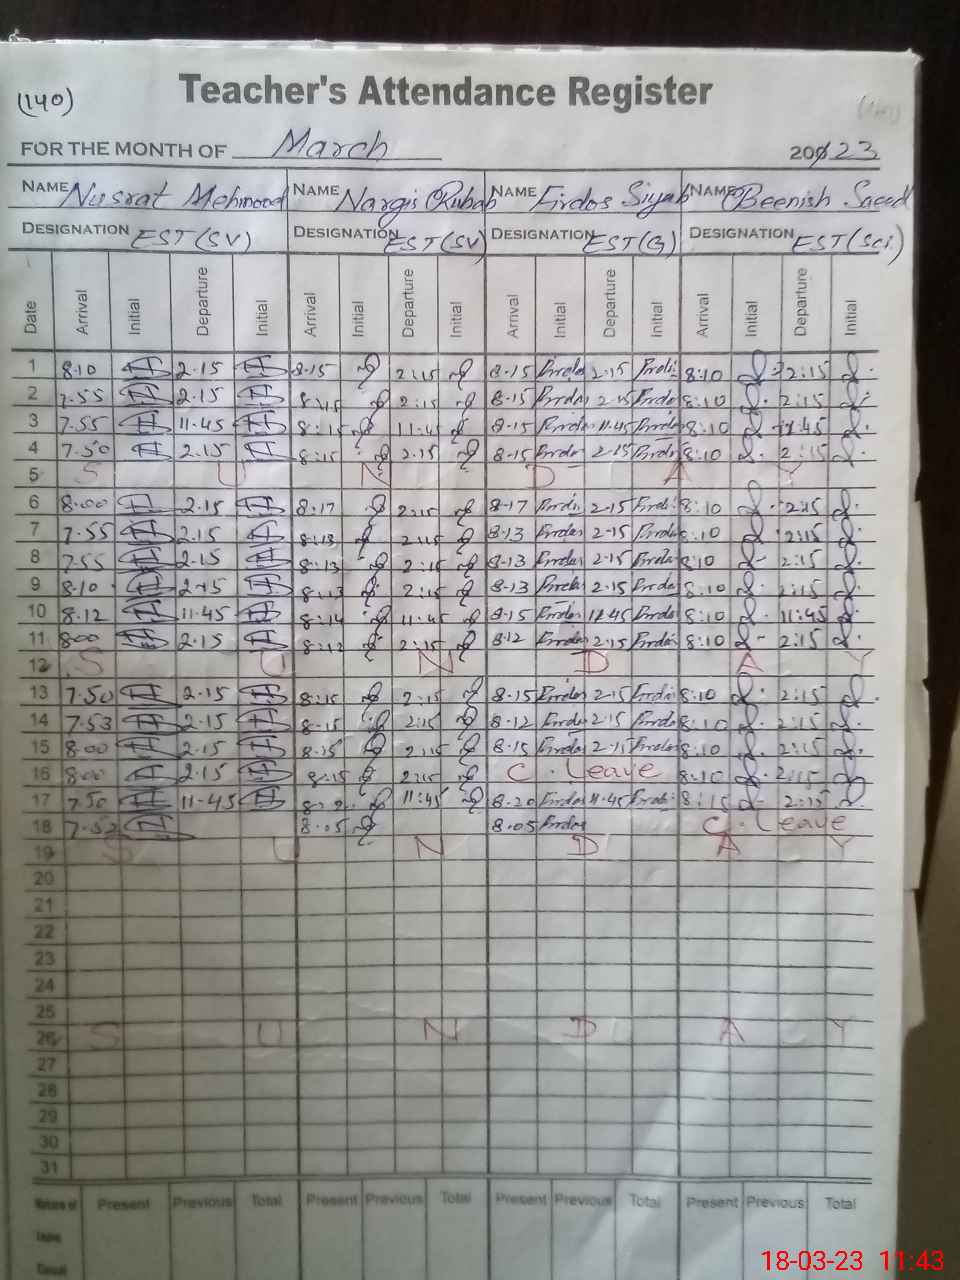 (140)
Teacher's Attendance Register
FOR THE MONTH OF March 20 23
NAME Nusrat Mehmood NAME Nargis Rubab NAME Firdos Siyab NAME Beenish Saeed
DESIGNATION EST(SV) DESIGNATION EST(SV) DESIGNATION EST(G) DESIGNATION EST(Sci.)
Date Arrival Initial Departure Initial Arrival Initial Departure Initial Arrival Initial Departure Initial Arrival Initial Departure Initial
1 8.10 2.15 8.15 2:15 8.15 Firdos 2.15 Firdos 8:10 2:15
2 7.55 2.15 8:15 2:15 8.15 Firdos 2.15 Firdos 8:10 2:15
3 7.55 11.45 8:15 11:45 8.15 Firdos 11.45 Firdos 8:10 11:45
4 7.50 2.15 8:15 2.15 8.15 Firdos 2.15 Firdos 8:10 2:15
5 S U N D A Y
6 8.00 2.15 8:17 2:15 8.17 Firdos 2.15 Firdos 8:10 2:15
7 7.55 2.15 8:13 2:15 8.13 Firdos 2.15 Firdos 8:10 2:15
8 7.55 2.15 8:13 2:15 8.13 Firdos 2.15 Firdos 8:10 2:15
9 8.10 2.15 8:13 2:15 8.13 Firdos 2.15 Firdos 8:10 2:15
10 8.12 11.45 8:14 11:45 8.15 Firdos 11.45 Firdos 8:10 11:45
11 8.00 2.15 8:12 2:15 8.12 Firdos 2.15 Firdos 8:10 2:15
12 S U N D A Y
13 7.50 2.15 8:15 2:15 8.15 Firdos 2.15 Firdos 8:10 2:15
14 7.53 2.15 8:15 2:15 8.12 Firdos 2.15 Firdos 8:10 2:15
15 8.00 2.15 8:15 2:15 8.15 Firdos 2.15 Firdos 8:10 2:15
16 8.00 2.15 8:15 2:15 C. Leave 8:10 2:15
17 7.50 11.45 11:45 8.20 Firdos 11.45 Firdos 8:15 2:15
18 7.52 8.05 8.05 Firdos C. Leave
19 S U N D A Y
20
21
22
23
24
25
26 S U N D A Y
27
28
29
30
31
Present Previous Total Present Previous Total Present Previous Total Present Previous Total
Casual
18-03-23 11:43